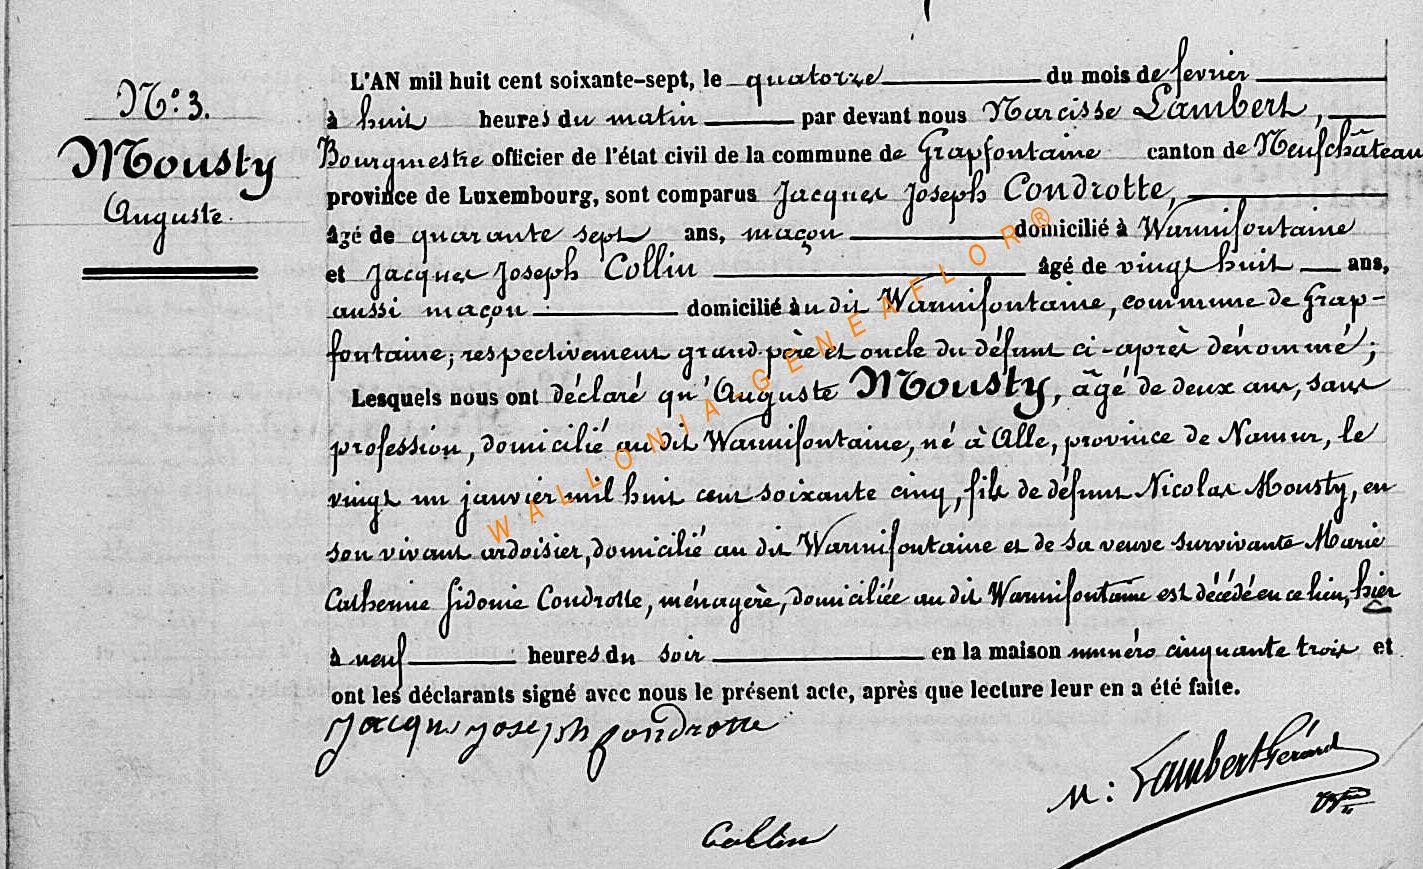 N.o 3.
Mousty
Auguste.
L'AN mil huit cent soixante-sept, le quatorze du mois de fevrier
à huit heures du matin par devant nous Narcisse Lambert,
Bourgmestre officier de l'état civil de la commune de Grapfontaine canton de Neufchâteau
province de Luxembourg, sont comparus Jacques Joseph Condrotte,
âgé de quarante sept ans, maçon domicilié à Warmifontaine
et Jacques Joseph Collin âgé de vingt huit ans,
aussi maçon domicilié àu dit Warmifontaine, commune de Grap-
fontaine; respectivement grand-père et oncle du défunt ci-après dénommé;
Lesquels nous ont déclaré qu'Auguste Mousty, âgé de deux ans, sans
profession, domicilié au dit Warmifontaine, né à Alle, province de Namur, le
vingt un janvier mil huit cent soixante cinq, fils de défunt Nicolas Mousty, en
son vivant ardoisier, domicilié au dit Warmifontaine et de sa veuve survivante Marie
Catherine Sidonie Condrotte, ménagère, domiciliée au dit Warmifontaine est décédé en ce lieu, hier
à neuf heures du soir en la maison numéro cinquante trois et
ont les déclarants signé avec nous le présent acte, après que lecture leur en a été faite.
Jacque Joseph Condrotte
N: Lambert Gérard
Collin
WALLONIA-GENEAFLOR®